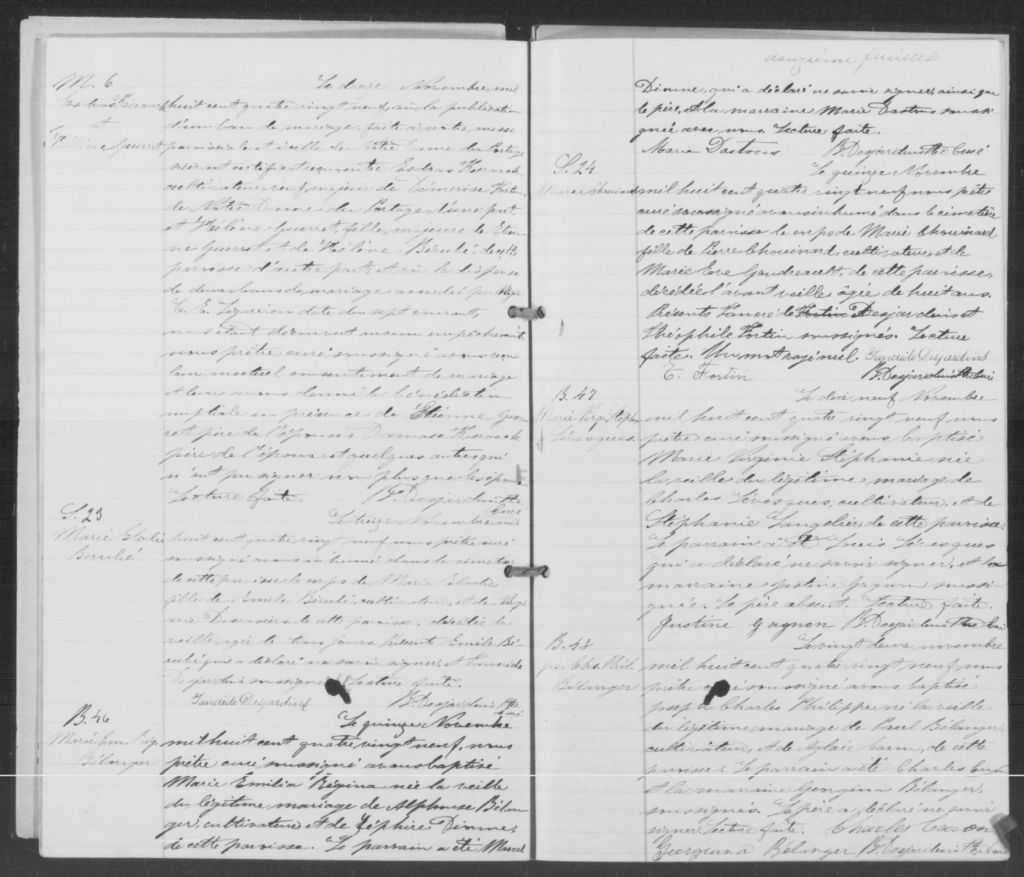 M. 6
et
Le douze Novembre mil
huit cent quatre vingt neuf, vu la publication
d'un ban de mariage faite à notre messe
paroissiale et à celle de Notre Dame du Portage
cultivateur, fils majeur de
de Notre Dame du Portage d'une part,
et Hélène Guerret, fille majeure de Etien
ne Guerret et de Hélène Bérubé de cette
paroisse d'autre part, et vu la dispense
de deux bans de mariage accordée par Mgr
en date du sept courant,
ne s'étant découvert aucun empêchement,
nous prêtre curé soussigné avons reçu
leur mutuel consentement de mariage
et leur avons donné la bénédiction
nuptiale en présence de Etienne Guer
ret père de l'épouse, Damase
père de l'époux et quelques autres qui
n'ont pu signer non plus que les époux
Lecture faite. B. Desjardins Ptre
Curé
S. 23
Marie Elodie
Bérubé
Le treize Novembre mil
huit cent quatre vingt neuf nous prêtre curé
soussigné avons inhumé dans le cimetière
de cette paroisse le corps de Marie Elodie
fille de Emile Bérubé, cultivateur, et de
de cette paroisse, décédée la
veille, agée de trois jours. Présents Emile Bé-
rubé qui a déclaré ne savoir signer, et Tancrède
Desjardins soussigné. Lecture faite.
Tancrède Desjardins B. Desjardins Ptre
Curé
B. 46
Marie Em. Rég.
Bélanger
Le quinze Novembre
mil huit cent quatre vingt neuf, nous
prêtre curé soussigné avons baptisé
Marie Emilia Régina née la veille
du légitime mariage de Alphonse Bélan
ger, cultivateur et de Zéphire Dionne,
de cette paroisse. Le parrain a été Marcel
douzième feuillet
Dionne, qui a déclaré ne savoir signer, ainsi que
le père, et la marraine Marie Dastous sous-
gnée avec nous. Lecture faite.
Marie Dastous B. Desjardins Ptre Curé
S. 24
Marie Chouinard
Le quinze Novembre
mil huit cent quatre vingt neuf nous prêtre
curé soussigné avons inhumé dans le cimetière
de cette paroisse le corps de Marie Chouinard
fille de Pierre Chouinard, cultivateur, et de
Marie Eve Gaudreault, de cette paroisse,
décédée l'avant veille âgée de huit ans.
Présents Tancrède Desjardins et
Théophile Fortin soussignés. Lecture
faite. Un mot rayé nul. Tancrède Desjardins
T. Fortin B. Desjardins Ptre Curé
B. 47
Marie Virg. Stéph.
Lévesques.
Le dix neuf Novembre
mil huit cent quatre vingt neuf nous
prêtre curé soussigné avons baptisé
Marie Virginie Stéphanie née
la veille du légitime mariage de
Charles Lévesques, cultivateur, et de
Stéphanie Langelier de cette paroisse.
Le parrain a été Louis Lévesques
qui a déclaré ne savoir signer, et la
marraine Justine Gagnon soussi-
gnée. Le père absent. Lecture faite.
Justine Gagnon B. Desjardins Ptre Curé
B. 48
Bélanger
Le vingt deux novembre
mil huit cent quatre vingt neuf, nous
prêtre curé soussigné avons baptisé
Joseph Charles Philippe né la veille
du légitime mariage de Paul Bélanger,
cultivateur, et de Aglaée Caron, de cette
paroisse. Le parrain a été Charles Caron
et la marraine Georgina Bélanger,
soussignés. Le père a déclaré ne savoir
signer. Lecture faite. Charles Caron
Georgeana Bélanger B. Desjardins Ptre Curé